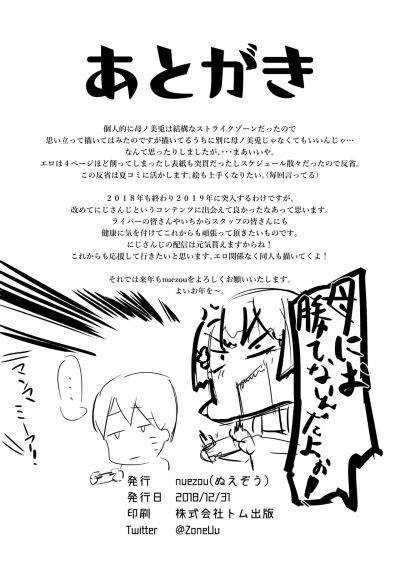 あとがき
個人的に母ノ美兎は結構なストライクゾーンだったので
思い立って描いてはみたのですが描いてるうちに別に母ノ美兎じゃなくてもいいんじゃ…
なんて思ったりしましたが、・・・まあいいや。
エロは４ページほど削ってしまったし表紙も突貫だったしスケジュール散々だったので反省。
この反省は夏コミに活かします。絵も上手くなりたい。（毎回言ってる）
２０１８年も終わり２０１９年に突入するわけですが、
改めてにじさんじというコンテンツに出会えて良かったなあって思います。
ライバーの皆さんやいちからスタッフの皆さんにも
健康に気を付けてこれからも頑張って頂きたいものです。
にじさんじの配信は元気貰えますからね！
これからも応援して行きたいと思います。エロ関係なく同人も描いてくよ！
それでは来年もnuezouをよろしくお願いいたします。
よいお年を～。
母にお
勝てないんだよぉ！
・・・
マンマミーア！
発行 nuezou(ぬえぞう)
発行日 2018/12/31
印刷 株式会社トム出版
Twitter @ZoneUu